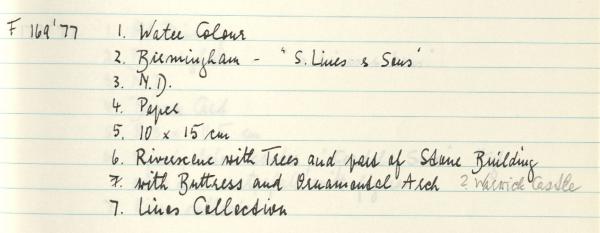 F 169'77 1. Water Colour
2. Birmingham - "S. Lines & Sons"
3. N.D.
4. Paper
5. 10 x 15 cm
6. Riverscene with Trees and part of Stone Building
7. with Buttress and Ornamental Arch ? Warwick Castle
7. Lines Collection